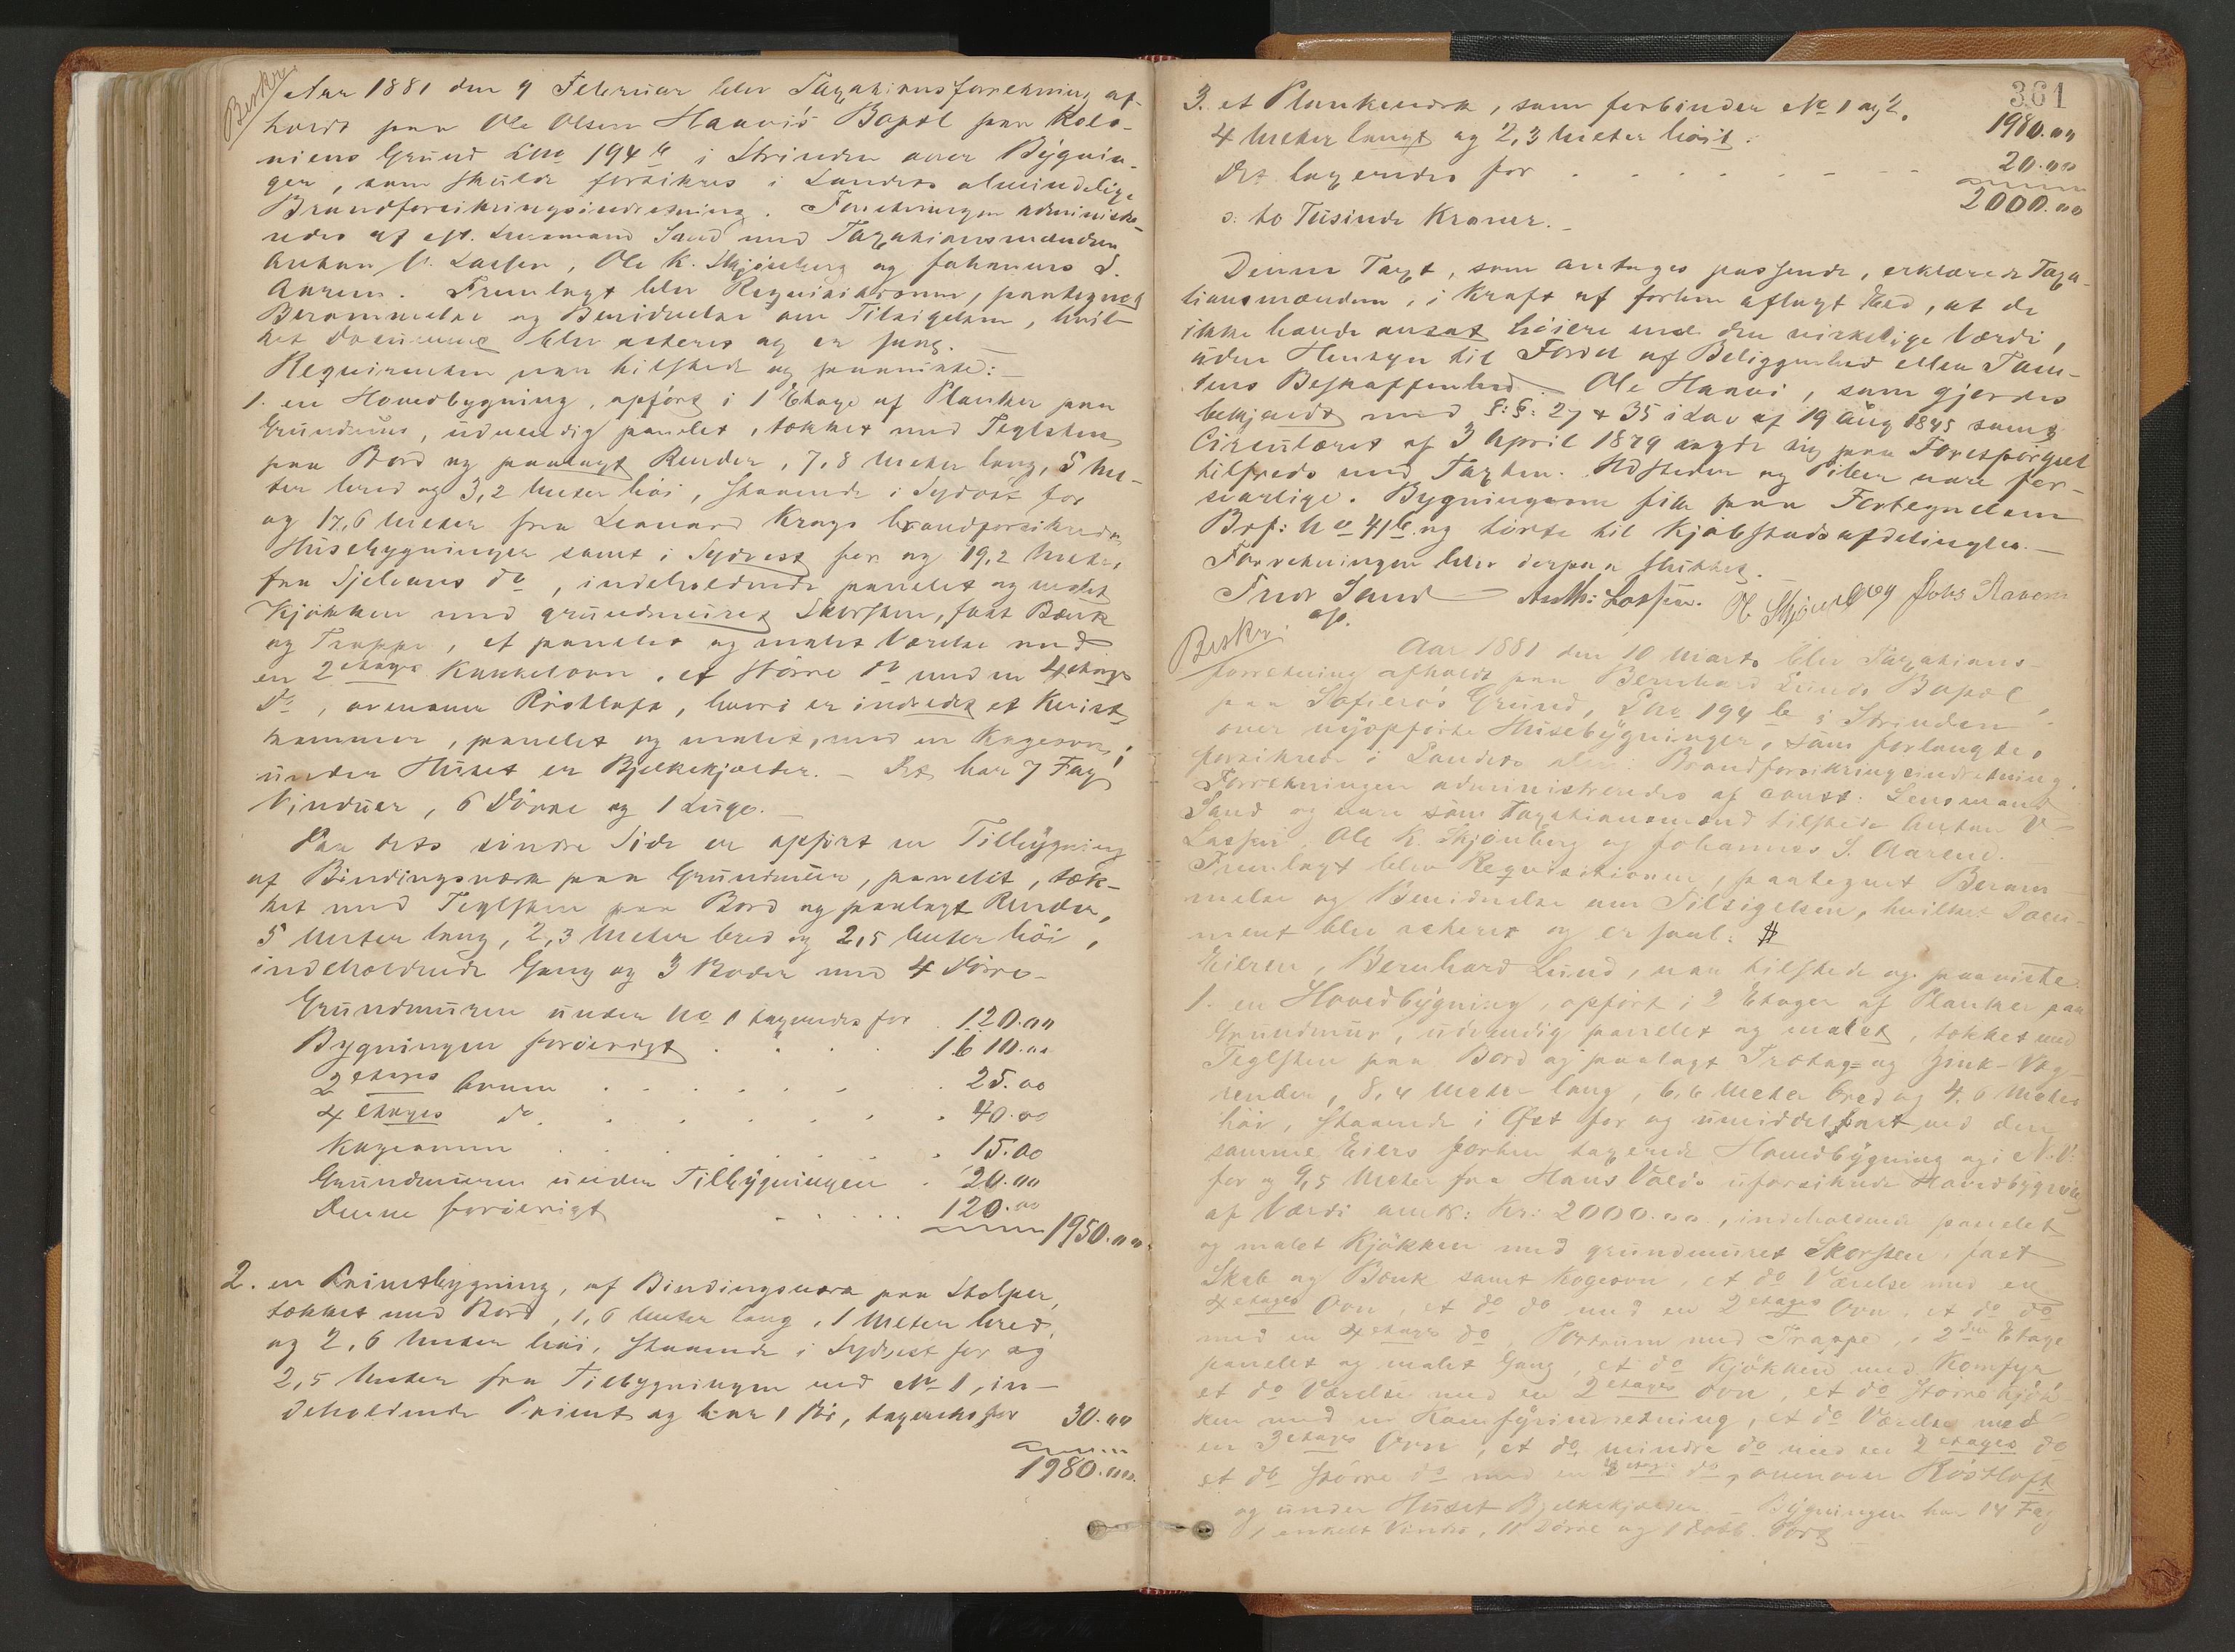 Beskr.
Aar 1881 den 9 Februar blev Taxationsforretning af-
holdt paa Ole Olsen Haavis Bopæl paa Kolo-
niens Grund LNo 194 b i Strinden over Bygnin-
ger, som skulde forsikres i Landets almindelige
Brandforsikringsindretning. Forretningen administre-
redes af cst. Lensmand Sand med Taxationsmændene
Anton V. Lassen, Ole K. Skjönberg og Johannes S.
Aarein. Fremlagt blev Requisitionen, paategnet
Berammelse og Bevidnelse om Tilsigelsen, hvil-
ket Document blev acteret og er saal.
Requirenten var tilstede og paaviste:
1. en Hovedbygning, opført i 1 Etage af Planker paa
Grundmur, udvendig panelet, tækket med Teglsten
paa Bord og paalagt Render, 7,8 Meter lang, 5 Me-
ter bred og 3,2 Meter höi, staaende i Sydost for
og 17,6 Meter fra Leonard Krags brandforsikrede
Husebygninger samt i Sydvest for og 19,2 Meter
fra Sjelvens do, indeholdende panelet og malet
Kjökken med grundmuret Skorsten, fast Bænk
og Trappe, et panelet og malet Værelse med
en 2 etages Kakkelovn, et större do med en 4 etages
do, ovenover Röstloft, hvori er indredet et Kvist-
kammer, panelet og malet, med en Kogeovn;
under Huset er Bjelkekjælder. - Det har 7 Fag
Vinduer, 6 Dörre og 1 Luge.
Paa dets söndre Side er opfört en Tilbygning
af Bindingsværk paa Grundmur, panelet, tæk-
ket med Teglsten paa Bord og paalagt Render,
5 Meter lang, 2,3 Meter bred og 2,5 Meter höi,
indeholdende Gang og 3 Boder med 4 Dörre.
Grundmuren under No 1 taxeredes for 120.00
Bygningen foröverigt 1610.00
2 etages Ovnen 25.00
4 etages do. 40.00
Kogeovnen 15.00
Grundmuren under Tilbygningen 20.00
Denne foröverigt 120.00
1950.00.
2. en Privetbygning, af Bindingsværk paa Stolper,
tækket med Bord, 1,6 Meter lang, 1 Meter bred
og 2,6 Meter höi, staaende i Sydvest for og
2,5 Meter fra Tilbygningen ved No 1, in-
deholdende Privet og har 1 Dör, taxeredes for 30.00
1980.00.
361
3. et Plankeværk, som forbinder No 1 og 2, 1980.00
4 Meter langt og 2,3 Meter höit.
Det taxeredes for 20.00
2000.00
o: to Tusinde Kroner.
Denne Taxt, som antages passende, erklærede Taxa-
tionsmændene, i Kraft af forhen aflagt Eed, at de
ikke havde ansat höiere end den virkelige Værdi,
uden Hensyn til Fordel af Beliggenhed eller Tom-
tens Beskaffenhed. Ole Haavi, som gjordes
bekjendt med §:§: 27 & 35 i Lov af 19 Aug 1845 samt
Circulæret af 3 April 1879 sagde sig paa Forespörgsel
tilfreds med Taxten. Ildsteder og Piber vare for-
svarlige. Bygningerne fik paa Fortegnelsen
Brf: No 41 b. og hörte til Kjöbstadsafdelingen.
Forretningen blev derpaa sluttet.
Sand Anth: Lassen. O. Skjönberg Johs Aarein
cst.
Beskr.
Aar 1881 den 10 Marts blev Taxations-
forretning afholdt paa Bernhard Lunds Bopæl,
paa Sofierós Grund, LNo 194 b i Strinden
over nyopförte Husebygninger, som forlangtes
forsikrede i Landets alm: Brandforsikringsindretning.
Forretningen administreredes af const: Lensmand
Sand og vare som Taxationsmænd tilstede Anton V.
Lassen, Ole K. Skjönberg og Johannes S. Aarein.
Fremlagt blev Requisitionen, paategnet Beram-
melse og Bevidnelse om Tilsigelsen, hvilket Docu-
ment blev acteret og er saal:
Eieren, Bernhard Lund, var tilstede og paaviste:
1. en Hovedbygning, opfört i 2 Etager af Planker paa
Grundmur, udvendig panelet og malet, tækket med
Teglsten paa Bord og paalagt Trætag- og Zink-Tag-
render, 8,4 Meter lang, 6,6 Meter bred og 4,6 Meter
höi, staaende i Öst for og umiddelbart ved den
samme Eiers forhen taxerede Hovedbygning og i N.V.
for og 9,5 Meter fra Hans Volds uforsikrede Hovedbygning
af Værdi omtr: Kr: 2000.00, indeholdende panelet
og malet Kjökken med grundmuret Skorsten, fast
Skab og Bænk samt Kogeovn, et do Værelse med en
4 etages Ovn, et do do med en 2 etages Ovn, et do do
med en 4 etages do, Portrum med Trappe, i 2den Etage
panelet og malet Gang, et do Kjökken med Komfyr
et do Værelse med en 2 etages Ovn, et do större Kjök-
ken med en Komfyrindretning, et do Værelse med
en 3 etages Ovn, et do mindre do med en 2 etages do
et do större do med en etages do, ovenover Röstloft
og under Huset Bjelkekjælder. Bygningen har 14 Fag
1 enkelt Vindu, 11 Dörre og 1 dobb. Port